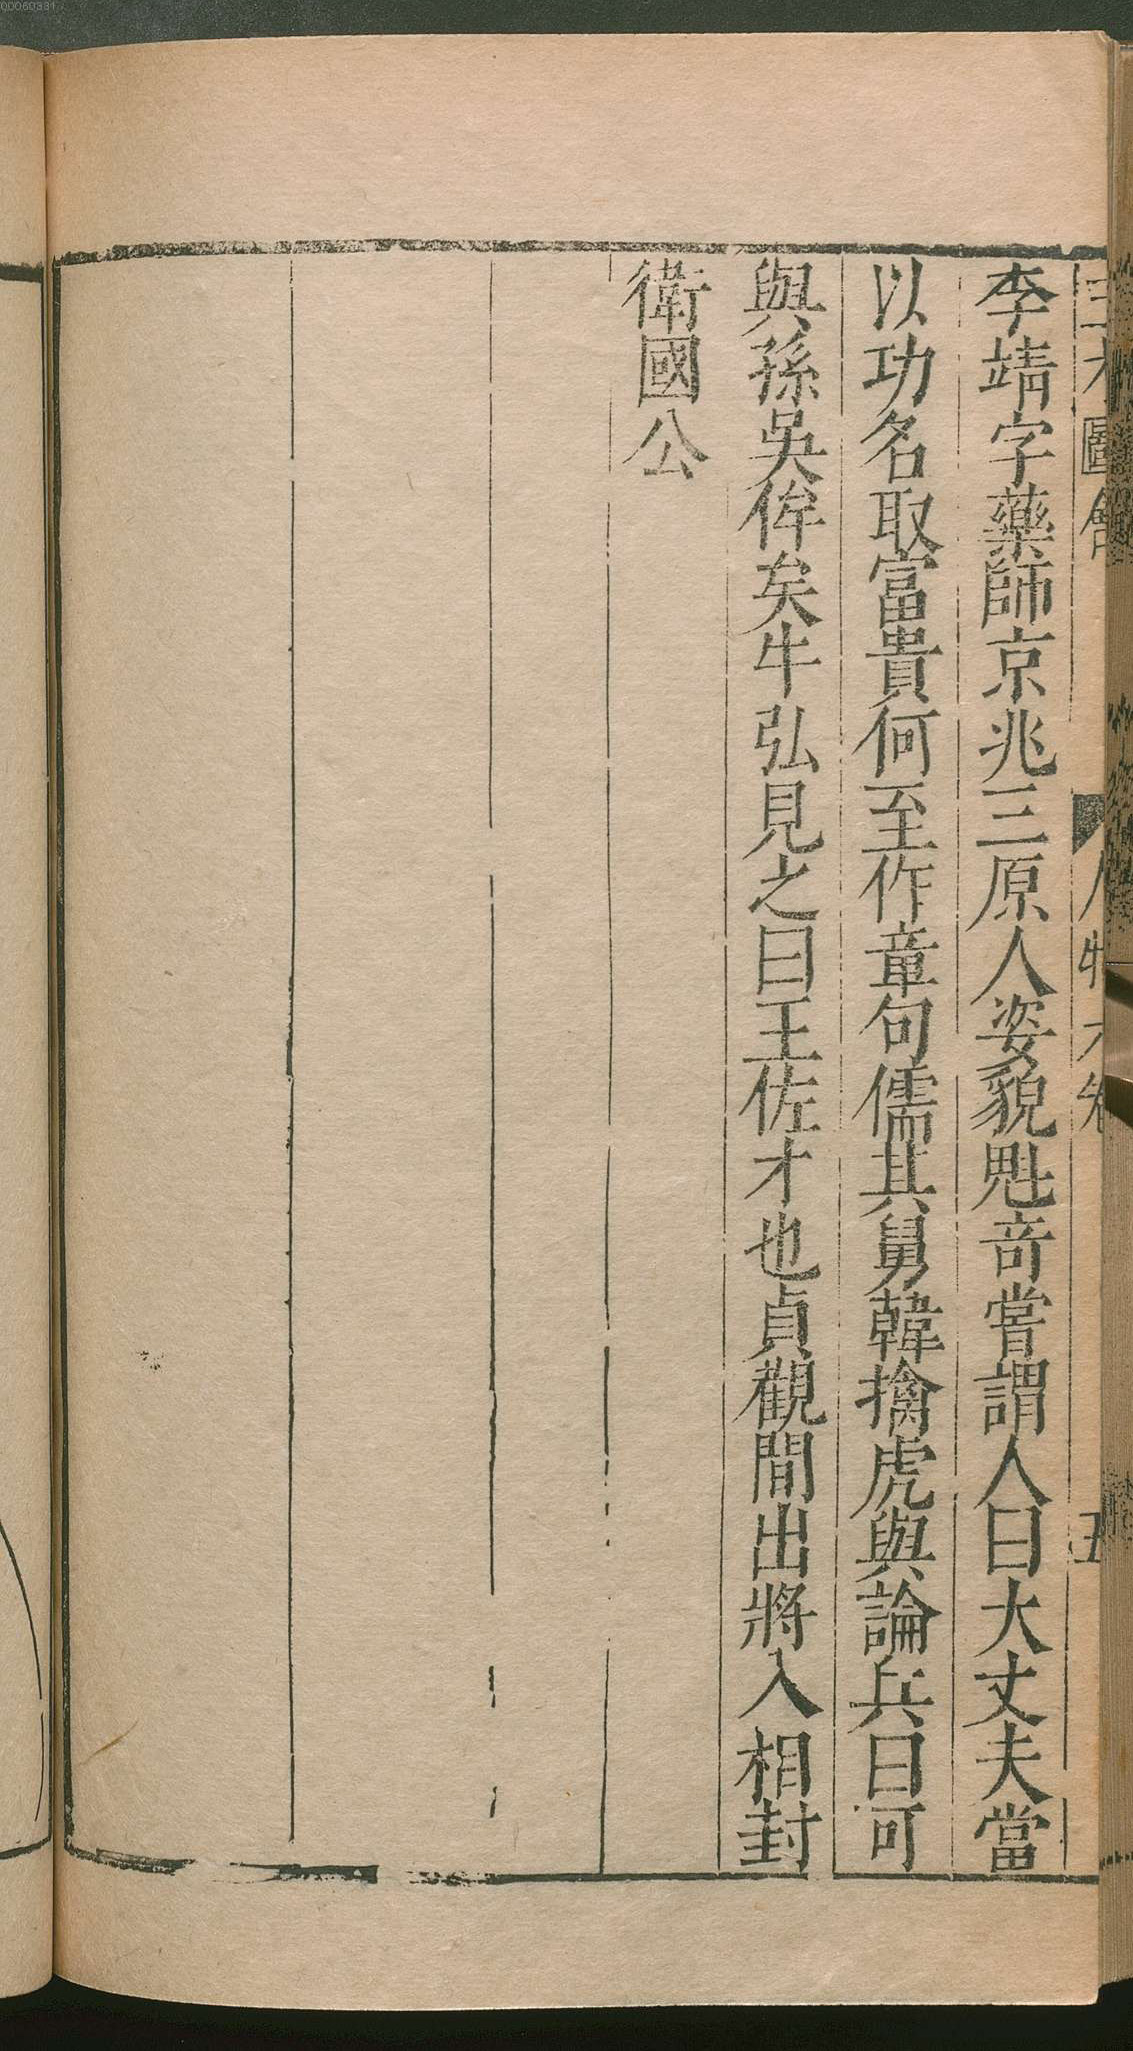 李靖字藥師京兆三原人姿貌魁竒嘗謂人曰大丈夫當
以功名取富貴何至作章句儒其舅韓擒虎與論兵曰可
與孫吳侔矣牛弘見之曰王佐才也貞觀間出將入相封
衛國公
三才圖會 人物六卷 五
00060331